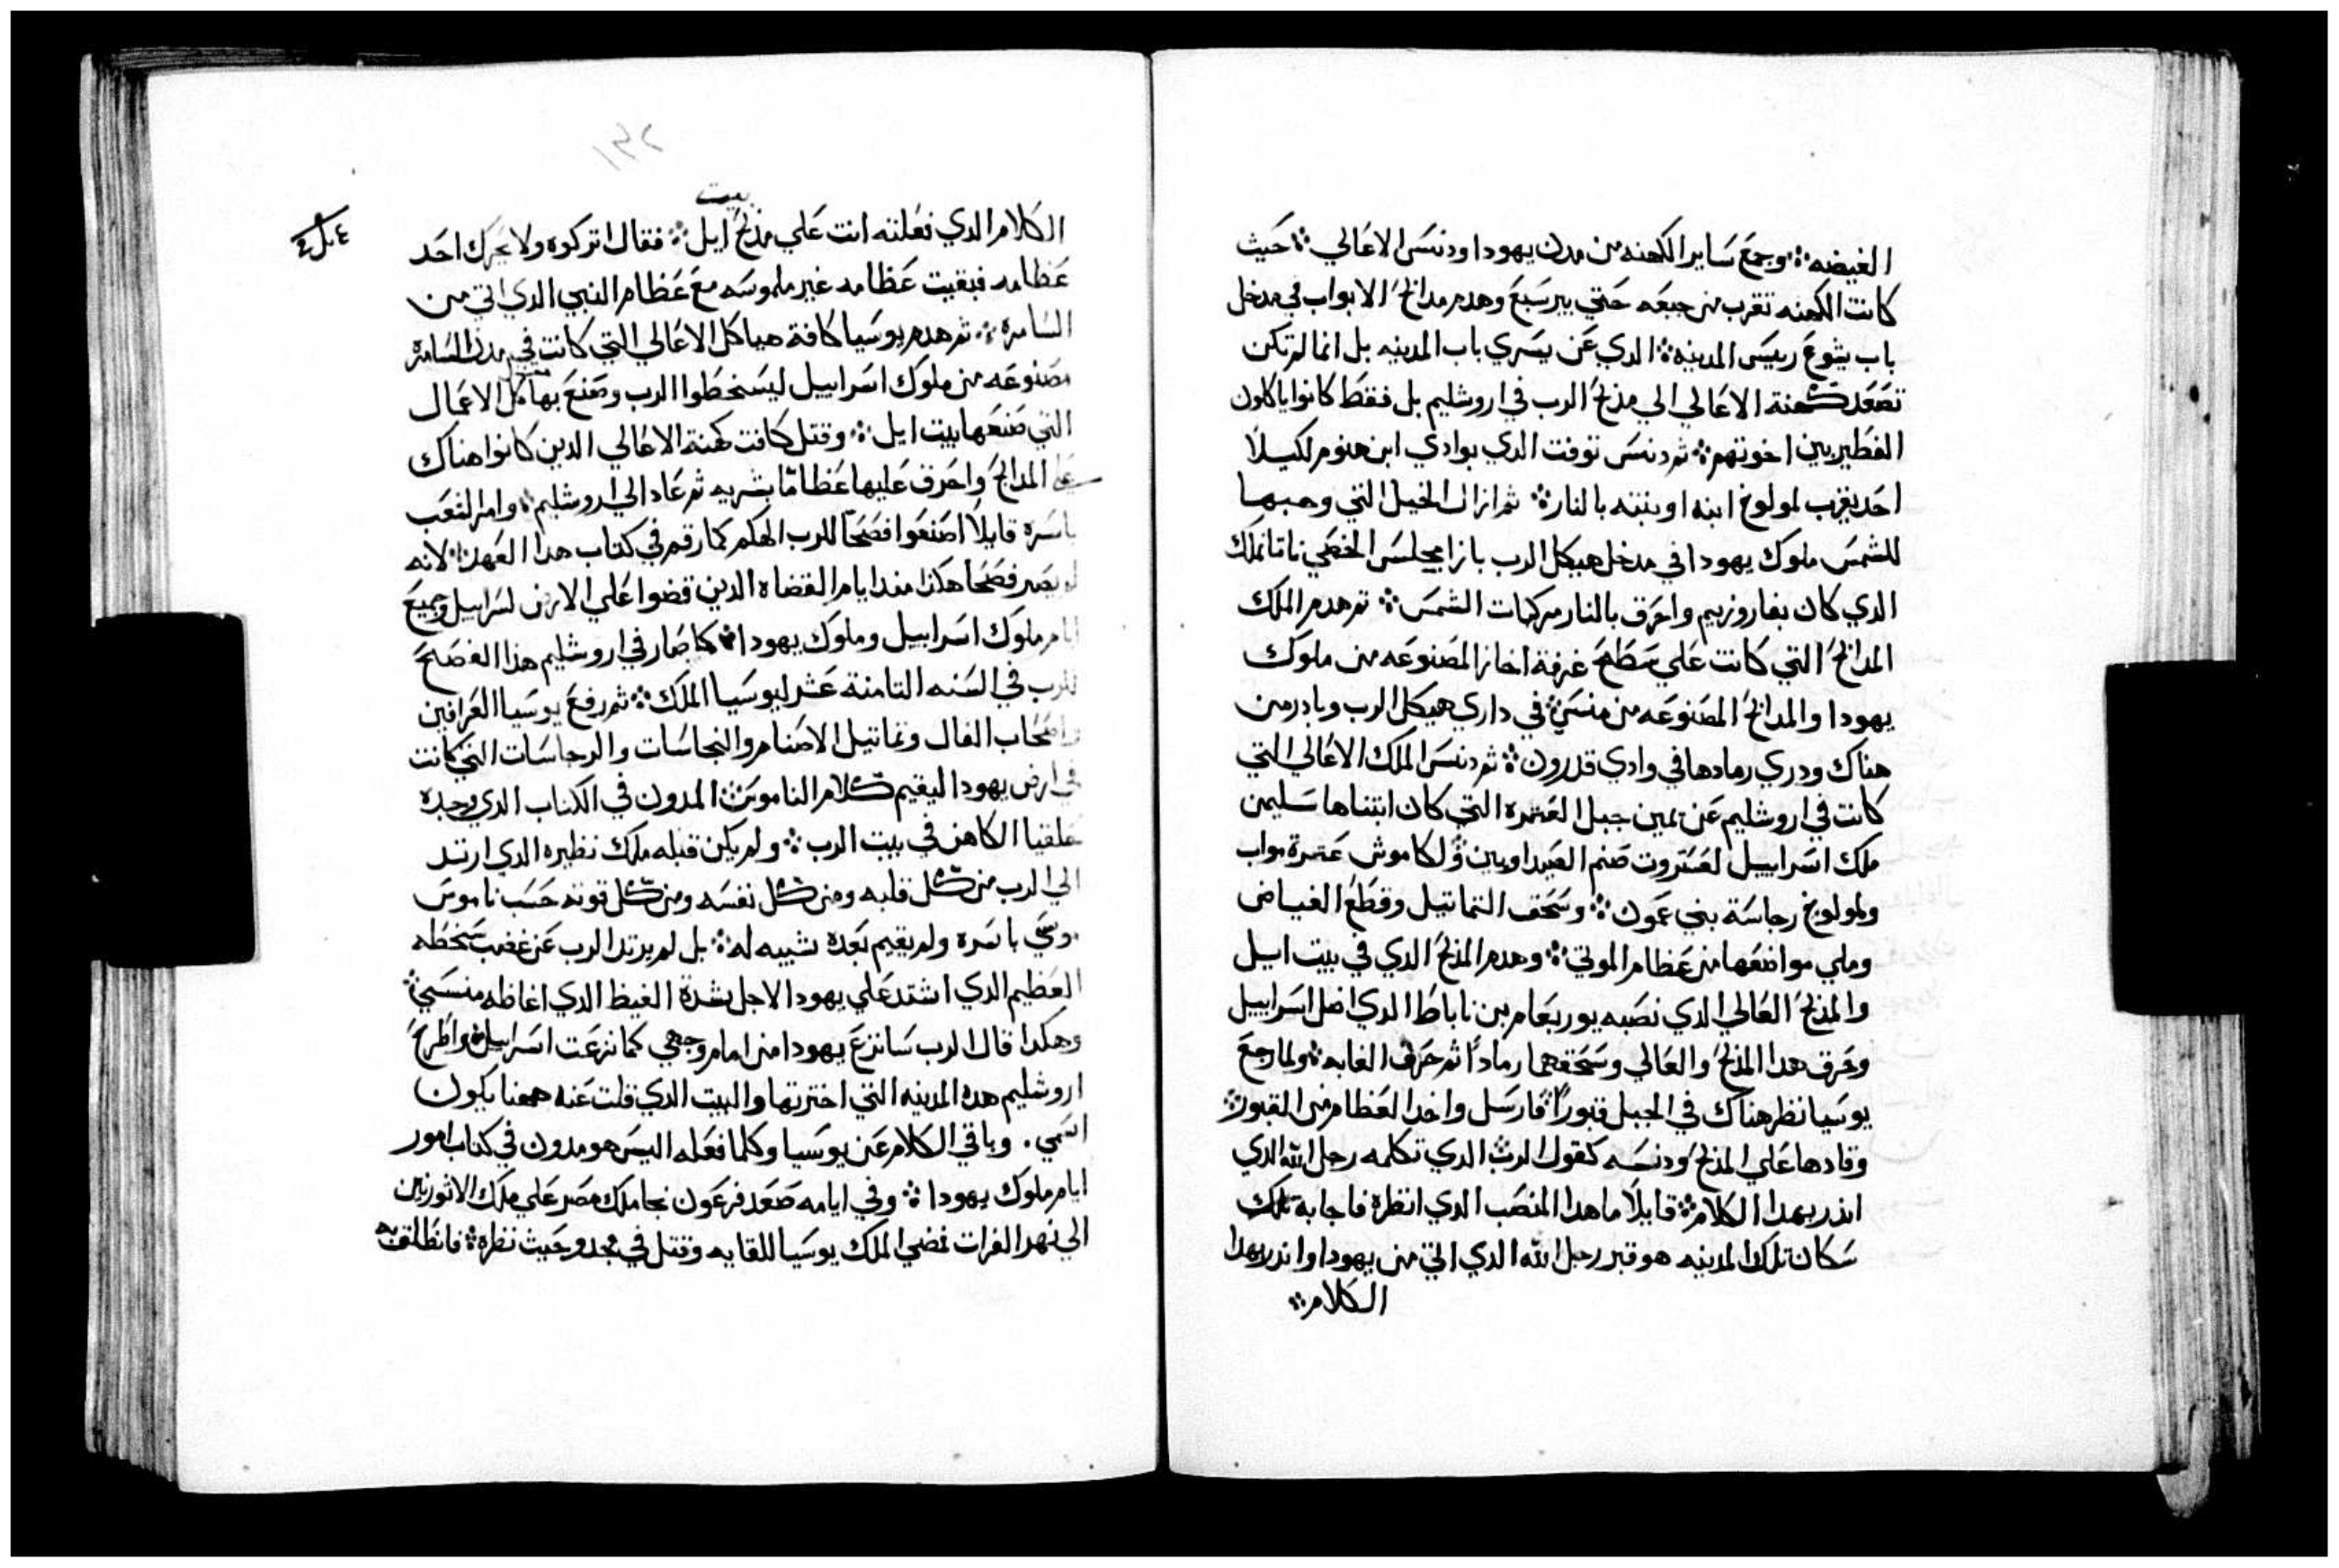 الغيضه ܀ وجمع ساير الكهنه من مدن يهودا ودنس الاعالي ܀ حيث
كانت الكهنه تقرب من جبعه حتي بير سبع وهدم مدابح الابواب في مدخل
باب يشوع رييس المدينه ܀ الدي عن يسري باب المدينه بل انما لم تكن
تصعد كهنة الاعالي الي مذبح الرب في اروشليم بل فقط كانوا ياكلون
الفطير بين اخوتهم ܀ ثم دنس توفت الدي بوادي ابن هنوم لكيلا
احد يقرب لمولوخ ابنه او بنته بالنار ܀ ثم ازال الخيل التي وهبها
للشمس ملوك يهودا في مدخل هيكل الرب بازا مجلس الخصي ناتانملك
الدي كان بفاروزيم واحرق بالنار مركبات الشمس ܀ ثم هدم الملك
المدابح التي كانت علي سطح غرفة احاز المصنوعه من ملوك
يهودا والمدابح المصنوعه من منسي ܀ في داري هيكل الرب وبادر من
هناك ودري رمادها في وادي قدرون ܀ ثم دنس الملك الاعالي التي
كانت في اروشليم عن يمين جبل العثره التي كان ابتناها سليمن
ملك اسراييل لعستروت صنم الصيداويين ولكاموش عثرة مواب
ولمولوخ رجاسة بني عمون ܀ وسحف التماتيل وقطع الغياض
وملي مواضعها من عظام الموتي ܀ وهدم المذبح الدي في بيت ايل
والمذبح العالي الدي نصبه يوربعام بن ناباط الدي اضل اسراييل
وحرق هدا المذبح والعالي وسحقهما رمادًا ثم حرق الغابه ܀ ولما رجع
يوسيا نظر هناك في الجبل قبورًا ܀ فارسل واخدا العظام من القبور ܀
وقادها علي المذبح ودنسه كقول الرب الدي تكلمه رجل الله الدي
اندر بهدا الكلام ܀ قايلًا ما هدا المنصب الدي انظره فاجابه تلك
سكان تلك المدينه هو قبر رجل الله الدي اتي من يهودا واندر بهدا
الكلام ܀
١٣٢
٤ مل ٤
بيت
الكلام الدي فعلته انت علي مذبح ايل ܀ فقال اتركوه ولا يحرك احد
عظامه فبقيت عظامه غير ملموسه مع عظام النبي الدي اتي من
السامره ܀ ثم هدم يوسيا كافة هياكل الاعالي التي كانت في مدن السامره
مصنوعه من ملوك اسراييل ليسخطوا الرب وصنع بها كل الاعمال
التي صنعها ببيت ايل ܀ وقتل كافت كهنة الاعالي الدين كانوا هناك
علي المدابح واحرق عليها عظامًا بشريه ثم عاد الي اروشليم ܀ وامر الشعب
باسره قايلًا اصنعوا فصحًا للرب الهكم كما رقم في كتاب هدا العهد ܀ لانه
لم يصر فصحا هكذا مندا يام القضاه الدين قضوا علي الارض اسراييل وجميع
ايام ملوك اسراييل وملوك يهودا ܀ كما صار في اروشليم هذا الفصح
للرب في السنه التامنة عشر ليوسيا الملك ܀ ثم رفع يوسيا العرافين
واصحاب الفال وتماتيل الاصنام والنجاسات والرجاسات التي كانت
في ارض يهودا ليقيم كلام الناموس ܀ المدون في الكتاب الدي وجده
حلقيا الكاهن في بيت الرب ܀ ولم يكن قبله ملك نظيره الدي ارتد
الي الرب من كل قلبه ومن كل نفسه ومن كل قوته حسب ناموس
موسي باسره ولم يقيم بعده شبيه له ܀ بل لم يرتد الرب عن غضب سخطه
العظيم الدي اشتد علي يهودا لاجل شدة الغيظ الدي اغاظه منسي ܀
وهكدا قال الرب سانزع يهودا من امام وجهي كما نزعت اسراييل ܀ واطرح
اروشليم هده المدينه التي اخترتها والبيت الدي قلت عنه ههنا يكون
اسمي . وباقي الكلام عن يوسيا وكلما فعله اليس هو مدون في كتاب امور
ايام ملوك يهودا ܀ وفي ايامه صعد فرعون نجا ملك مصر علي ملك الاثوريين
الي نهر الفرات فمضي الملك يوسيا للقايه وقتل في مجدو حيث نظره ܀ فانطلقت به